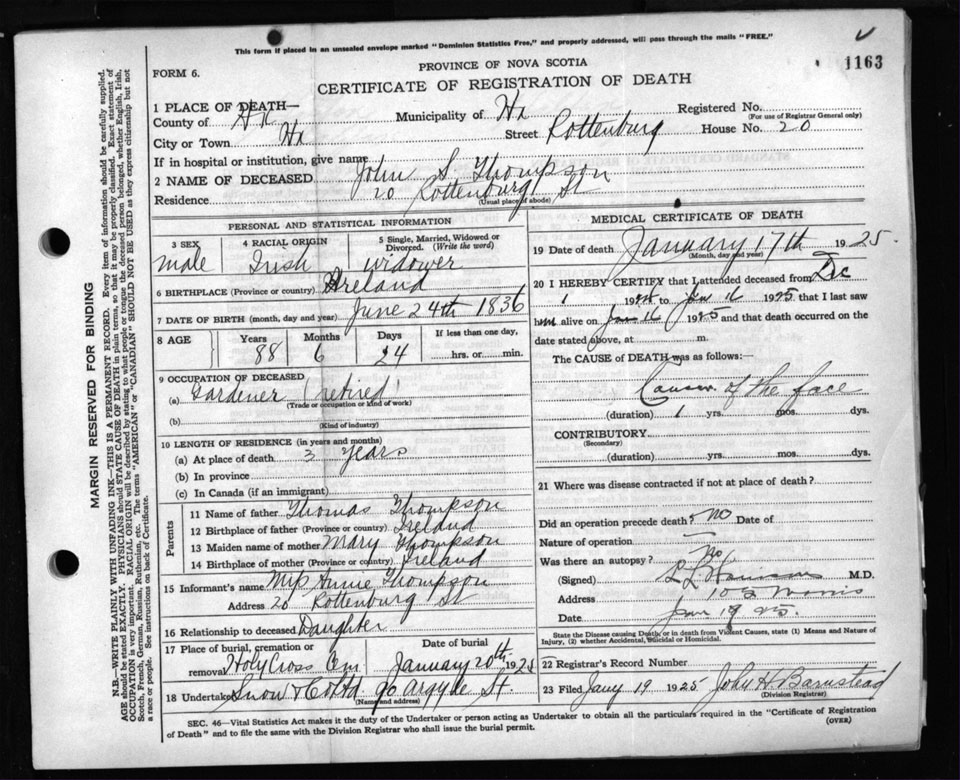 This form if placed in an unsealed envelope marked "Dominion Statistics Free," and properly addressed, will pass through the mails "FREE."
1163
FORM 6.
PROVINCE OF NOVA SCOTIA
CERTIFICATE OF REGISTRATION OF DEATH
1 PLACE OF DEATH—
County of Hx Municipality of Hx Registered No.
(For use of Registrar General only)
City or Town Hx Street Rottenburg House No. 20
If in hospital or institution, give name
2 NAME OF DECEASED John S. Thompson
Residence 20 Rottenburg St
(Usual place of abode)
PERSONAL AND STATISTICAL INFORMATION
3 SEX 4 RACIAL ORIGIN 5 Single, Married, Widowed or Divorced. (Write the word)
male Irish widower
6 BIRTHPLACE (Province or country) Ireland
7 DATE OF BIRTH (month, day and year) June 24th 1836
8 AGE Years Months Days If less than one day,
88 6 24 hrs. or min.
9 OCCUPATION OF DECEASED
(a) Gardener (retired)
(Trade or occupation or kind of work)
(b)
(Kind of industry)
10 LENGTH OF RESIDENCE (in years and months)
(a) At place of death 3 years
(b) In province
(c) In Canada (if an immigrant)
Parents
11 Name of father Thomas Thompson
12 Birthplace of father (Province or country) Ireland
13 Maiden name of mother Mary Thompson
14 Birthplace of mother (Province or country) Ireland
15 Informant's name Miss Annie Thompson
Address 20 Rottenburg St
16 Relationship to deceased Daughter
17 Place of burial, cremation or removal Holy Cross Cem Date of burial January 20th 1925
18 Undertaker Snow & Co Ltd 90 Argyle St.
(Name and address)
MEDICAL CERTIFICATE OF DEATH
19 Date of death January 17th 1925
(Month, day and year)
20 I HEREBY CERTIFY that I attended deceased from Dec
1 19 to Jan 16 1925 that I last saw
him alive on Jan 16 1925 and that death occurred on the
date stated above, at m.
The CAUSE of DEATH was as follows:
Cancer of the face
(duration) 1 yrs. mos. dys.
CONTRIBUTORY
(Secondary)
(duration) yrs. mos. dys.
21 Where was disease contracted if not at place of death?
Did an operation precede death? No Date of
Nature of operation —
Was there an autopsy? No
(Signed) M.D.
Address Morris
Date Jan 19 25.
State the Disease causing Death, or in death from Violent Causes, state (1) Means and Nature of
Injury, (2) whether Accidental, Suicidal or Homicidal.
22 Registrar's Record Number
23 Filed Jany 19 1925 John H. Barnstead
(Division Registrar)
SEC. 46—Vital Statistics Act makes it the duty of the Undertaker or person acting as Undertaker to obtain all the particulars required in the "Certificate of Registration
of Death" and to file the same with the Division Registrar who shall issue the burial permit.
(OVER)
MARGIN RESERVED FOR BINDING
N.B.—WRITE PLAINLY WITH UNFADING INK—THIS IS A PERMANENT RECORD. Every item of information should be carefully supplied.
AGE should be stated EXACTLY. PHYSICIANS should STATE CAUSE OF DEATH in plain terms, so that it may be properly classified. Exact statement of
OCCUPATION is very important. RACIAL ORIGIN will be described by stating to what people or tongue the deceased person belonged, whether English, Irish,
Scotch, French, German, Russian, Ruthenian, etc. The terms "AMERICAN" or "CANADIAN" SHOULD NOT BE USED as they express citizenship but not
a race or people. See instructions on back of Certificate.